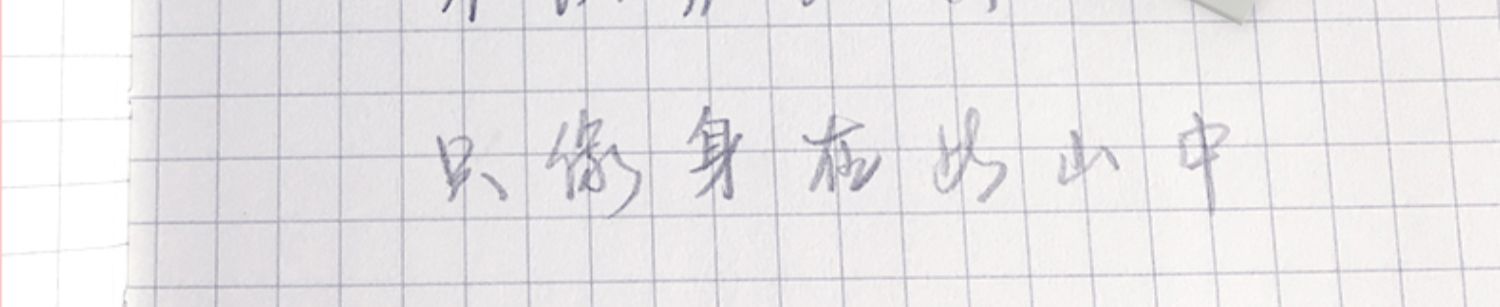 只缘身在此山中